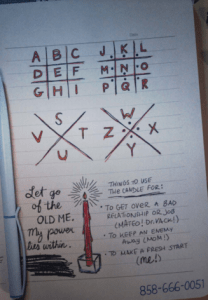 A B C
D E F
G H I
J K L
M N O
P Q R
S
V T
U
W
Z X
Y
Let go
of the
OLD ME.
My power
lies within.
THINGS TO USE
THE CANDLE FOR!
· TO GET OVER A BAD
RELATIONSHIP OR JOB
(MATEO! DILVACH!)
· TO KEEP AN ENEMY
AWAY (MOM!)
· TO MAKE A FRESH START
(me!)
858-666-0051